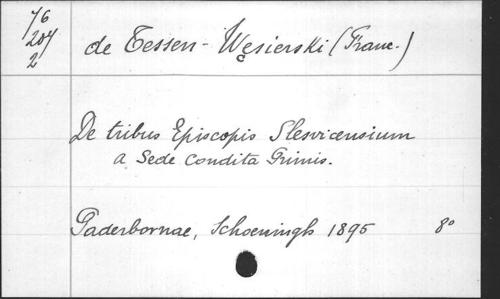 76
204
2
de Tessen-Węsierski (Franc.)
De tribus Episcopis Slesvicensium
a Sede Condita Primis.
Paderbornae, Schoeningh 1895 8°